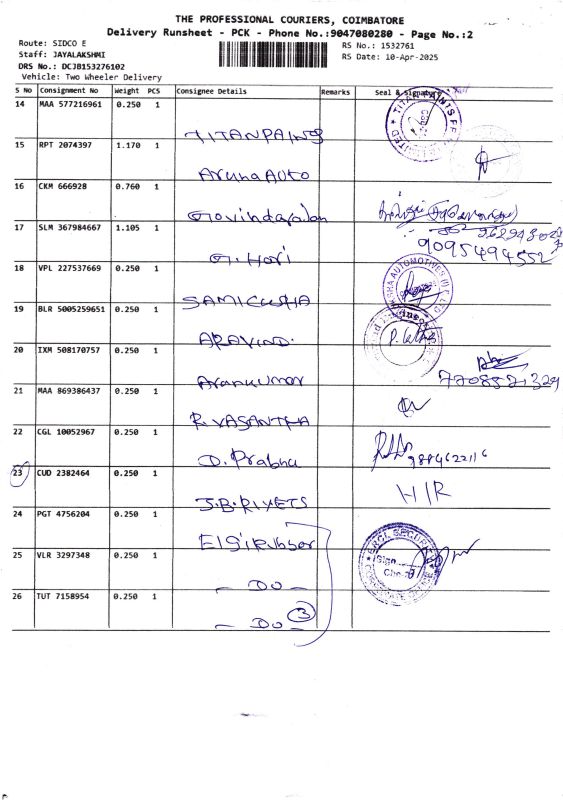 THE PROFESSIONAL COURIERS, COIMBATORE
Delivery Runsheet - PCK - Phone No.:9047080280 - Page No.:2
Route: SIDCO E
Staff: JAYALAKSHMI
DRS No.: DCJB153276102
Vehicle: Two Wheeler Delivery
RS No.: 1532761
RS Date: 10-Apr-2025
S No Consignment No Weight PCS Consignee Details Remarks Seal & Signature
14 MAA 577216961 0.250 1 TITANPAINTS
15 RPT 2074397 1.170 1 Aruna Auto
16 CKM 666928 0.760 1 Govindarajan
17 SLM 367984667 1.105 1 G. Hari 9095494552
18 VPL 227537669 0.250 1
19 BLR 5005259651 0.250 1 ARAVIND.
20 IXM 508170757 0.250 1 Arankumar 7708521329
21 MAA 869386437 0.250 1 R. VASANTHA
22 CGL 10052967 0.250 1 D. Prabhu 9884622116
23 CUD 2382464 0.250 1 J.B.RIVETS H/R
24 PGT 4756204 0.250 1 Elgi Rubber
25 VLR 3297348 0.250 1 - DO -
26 TUT 7158954 0.250 1 - DO - 3